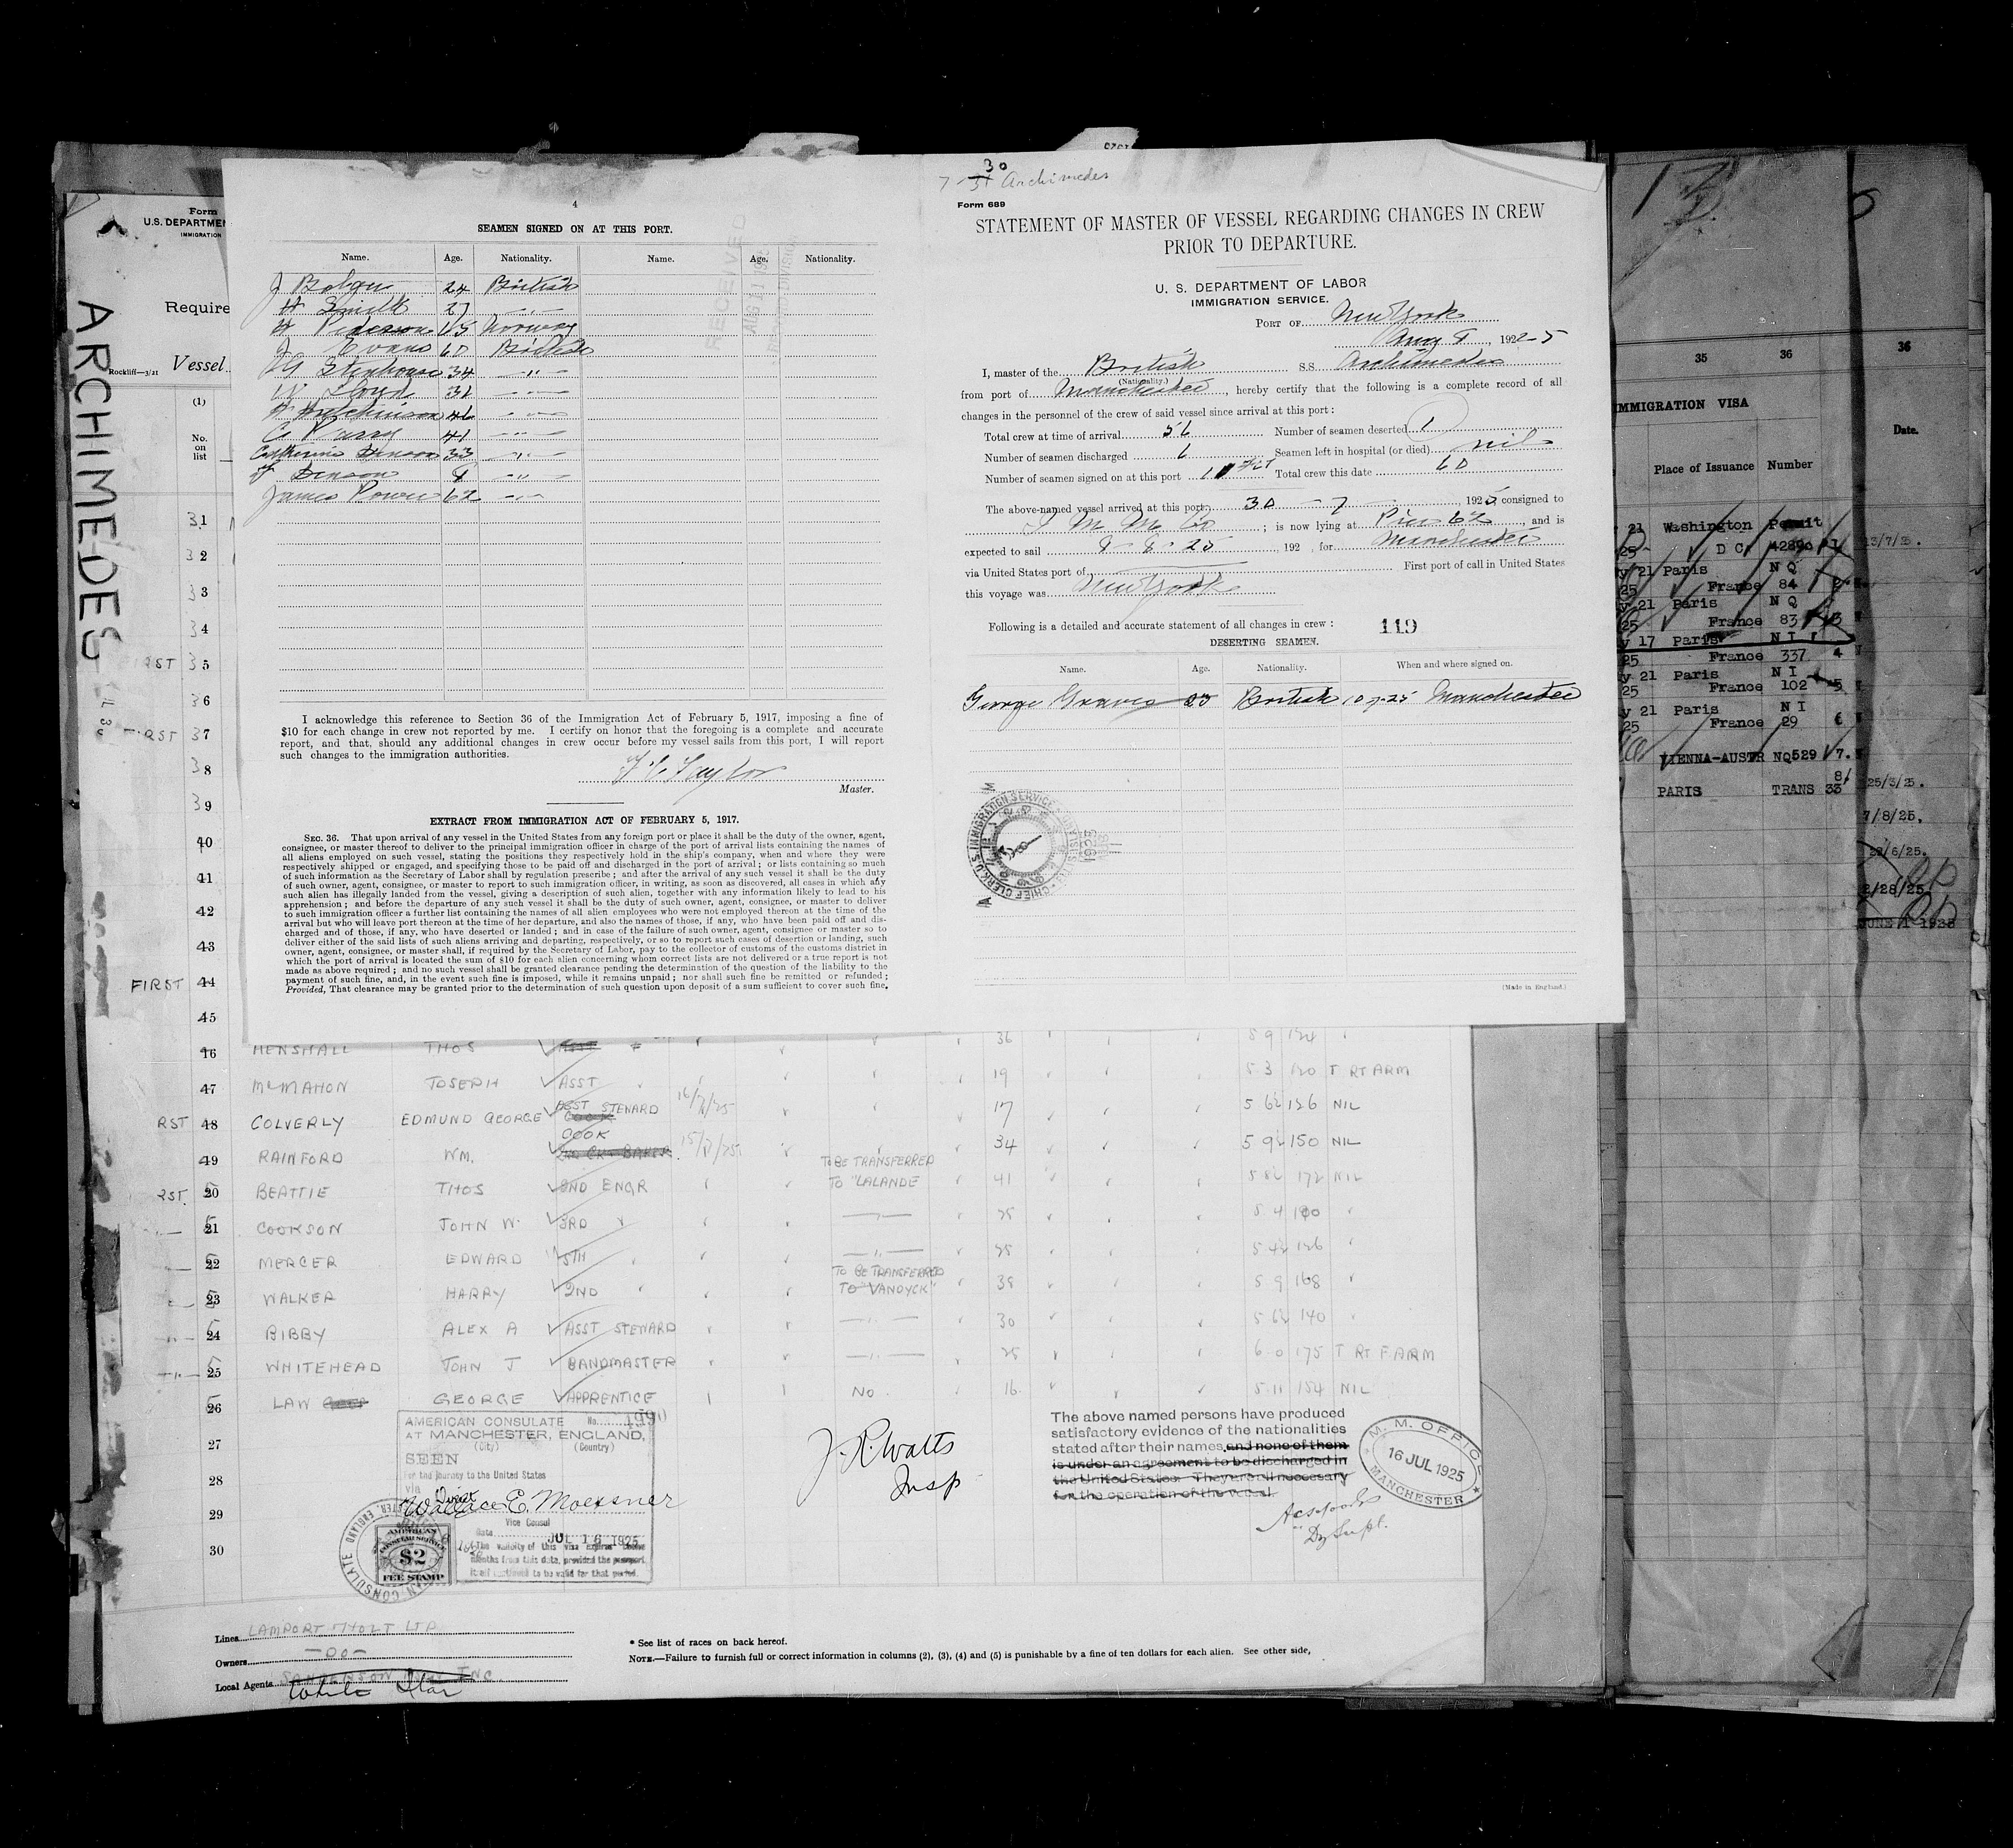 ARCHIMEDES
Form
U.S. DEPARTMEN
IMMIGRATION
Require
Rockliff—3/21 Vessel
(1)
No.
on
list
4
SEAMEN SIGNED ON AT THIS PORT.
Name. Age. Nationality. Name. Age. Nationality.
RECEIVED
24 British
H Smith 27 — " —
Norway
J Evans 60 British
Stenhouse 34 — " —
W Lloyd 31 — " —
H Hutchinson — " —
C Parry 41 — " —
Catherine Denson 33 — " —
Denson 8 — " —
James Power 62 — " —
I acknowledge this reference to Section 36 of the Immigration Act of February 5, 1917, imposing a fine of
$10 for each change in crew not reported by me. I certify on honor that the foregoing is a complete and accurate
report, and that, should any additional changes in crew occur before my vessel sails from this port, I will report
such changes to the immigration authorities.
Taylor
Master.
EXTRACT FROM IMMIGRATION ACT OF FEBRUARY 5, 1917.
SEC. 36. That upon arrival of any vessel in the United States from any foreign port or place it shall be the duty of the owner, agent,
consignee, or master thereof to deliver to the principal immigration officer in charge of the port of arrival lists containing the names of
all aliens employed on such vessel, stating the positions they respectively hold in the ship's company, when and where they were
respectively shipped or engaged, and specifying those to be paid off and discharged in the port of arrival; or lists containing so much
of such information as the Secretary of Labor shall by regulation prescribe; and after the arrival of any such vessel it shall be the duty
of such owner, agent, consignee, or master to report to such immigration officer, in writing, as soon as discovered, all cases in which any
such alien has illegally landed from the vessel, giving a description of such alien, together with any information likely to lead to his
apprehension; and before the departure of any such vessel it shall be the duty of such owner, agent, consignee, or master to deliver
to such immigration officer a further list containing the names of all alien employees who were not employed thereon at the time of the
arrival but who will leave port thereon at the time of her departure, and also the names of those, if any, who have been paid off and dis-
charged and of those, if any, who have deserted or landed; and in case of the failure of such owner, agent, consignee or master so to
deliver either of the said lists of such aliens arriving and departing, respectively, or so to report such cases of desertion or landing, such
owner, agent, consignee, or master shall, if required by the Secretary of Labor, pay to the collector of customs of the customs district in
which the port of arrival is located the sum of $10 for each alien concerning whom correct lists are not delivered or a true report is not
made as above required; and no such vessel shall be granted clearance pending the determination of the question of the liability to the
payment of such fine, and, in the event such fine is imposed, while it remains unpaid; nor shall such fine be remitted or refunded;
Provided, That clearance may be granted prior to the determination of such question upon deposit of a sum sufficient to cover such fine.
30
7-31 Archimedes
Form 689
STATEMENT OF MASTER OF VESSEL REGARDING CHANGES IN CREW
PRIOR TO DEPARTURE.
U. S. DEPARTMENT OF LABOR
IMMIGRATION SERVICE.
PORT OF New York
Aug 8, 1925
I, master of the British S.S. Archimedes
(Nationality.)
from port of Manchester, hereby certify that the following is a complete record of all
changes in the personnel of the crew of said vessel since arrival at this port:
Total crew at time of arrival 56 Number of seamen deserted 1
Number of seamen discharged 6 Seamen left in hospital (or died) nil
Number of seamen signed on at this port 11 Total crew this date 60
The above-named vessel arrived at this port 30 — 7 —, 1925, consigned to
I M M Co; is now lying at Pier 62, and is
expected to sail 8-8-25, 192 , for Manchester
via United States port of First port of call in United States
this voyage was New York
Following is a detailed and accurate statement of all changes in crew: 119
DESERTING SEAMEN.
Name. Age. Nationality. When and where signed on.
George Graves 23 British 10-7-25 Manchester
CHIEF CLERK U.S. IMMIGRATION SERVICE
1925
(Made in England.)
35 36 36
IMMIGRATION VISA
Place of Issuance Number Date.
21 Washington Permit
25 D C 42890 1 13/7/25.
y 21 Paris N Q
25 France 84 2
y 21 Paris N Q
25 France 83 3
y 17 Paris N I
25 France 337 4
y 21 Paris N I
25 France 102 5
y 21 Paris N I
25 France 29 6
VIENNA-AUSTR NQ529 7.
8
PARIS TRANS 33 25/3/25.
7/8/25.
22/6/25.
2/28/25
JUNE 1 1925
31
32
33
34
35
36
FIRST 37
38
39
40
41
42
43
FIRST 44
45
16 HENSHALL THOS 36 5 9 124
47 McMAHON JOSEPH ASST 19 5 3 120 T RT ARM
RST 48 COLVERLY EDMUND GEORGE ASST STEWARD COOK 16/7/25 17 5 6½ 126 NIL
49 RAINFORD WM. COOK 2ND CK & BAKER 15/7/25 34 5 9½ 150 NIL
RST. 20 BEATTIE THOS 2ND ENGR TO BE TRANSFERRED TO "LALANDE" 41 5 8½ 172 NIL
21 COOKSON JOHN W. 3RD — " — 25 5 4
22 MERCER EDWARD 5TH — " — 25 5 4½ 126
23 WALKER HARRY 2ND TO BE TRANSFERRED TO "VANDYCK" 39 5 9 168
24 BIBBY ALEX A ASST STEWARD — " — 30 5 6½ 140
25 WHITEHEAD JOHN J BANDMASTER — " — 25 6 0 175 T RT F ARM
26 LAW GEORGE APPRENTICE NO. 16 5 11 154 NIL
27
28
29
30
AMERICAN CONSULATE No. 1990
AT MANCHESTER, ENGLAND,
(City) (Country)
SEEN
For the journey to the United States
via Direct
Wallace E. Moessner
Vice Consul
date JUL 16 1925
The validity of this visa expires twelve
months from this date, provided the passport
itself continues to be valid for that period.
AMERICAN
CONSULAR SERVICE
$2
FEE STAMP
J. R. Watts
Insp
The above named persons have produced
satisfactory evidence of the nationalities
stated after their names, and none of them
is under an agreement to be discharged in
the United States. They are all necessary
for the operation of the vessel.
Dy Supt.
M. M. OFFICE
16 JUL 1925
MANCHESTER
Lines LAMPORT & HOLT LTD
Owners —DO—
Local Agents SANDERSON & SON INC.
White Star
* See list of races on back hereof.
NOTE.—Failure to furnish full or correct information in columns (2), (3), (4) and (5) is punishable by a fine of ten dollars for each alien. See other side,